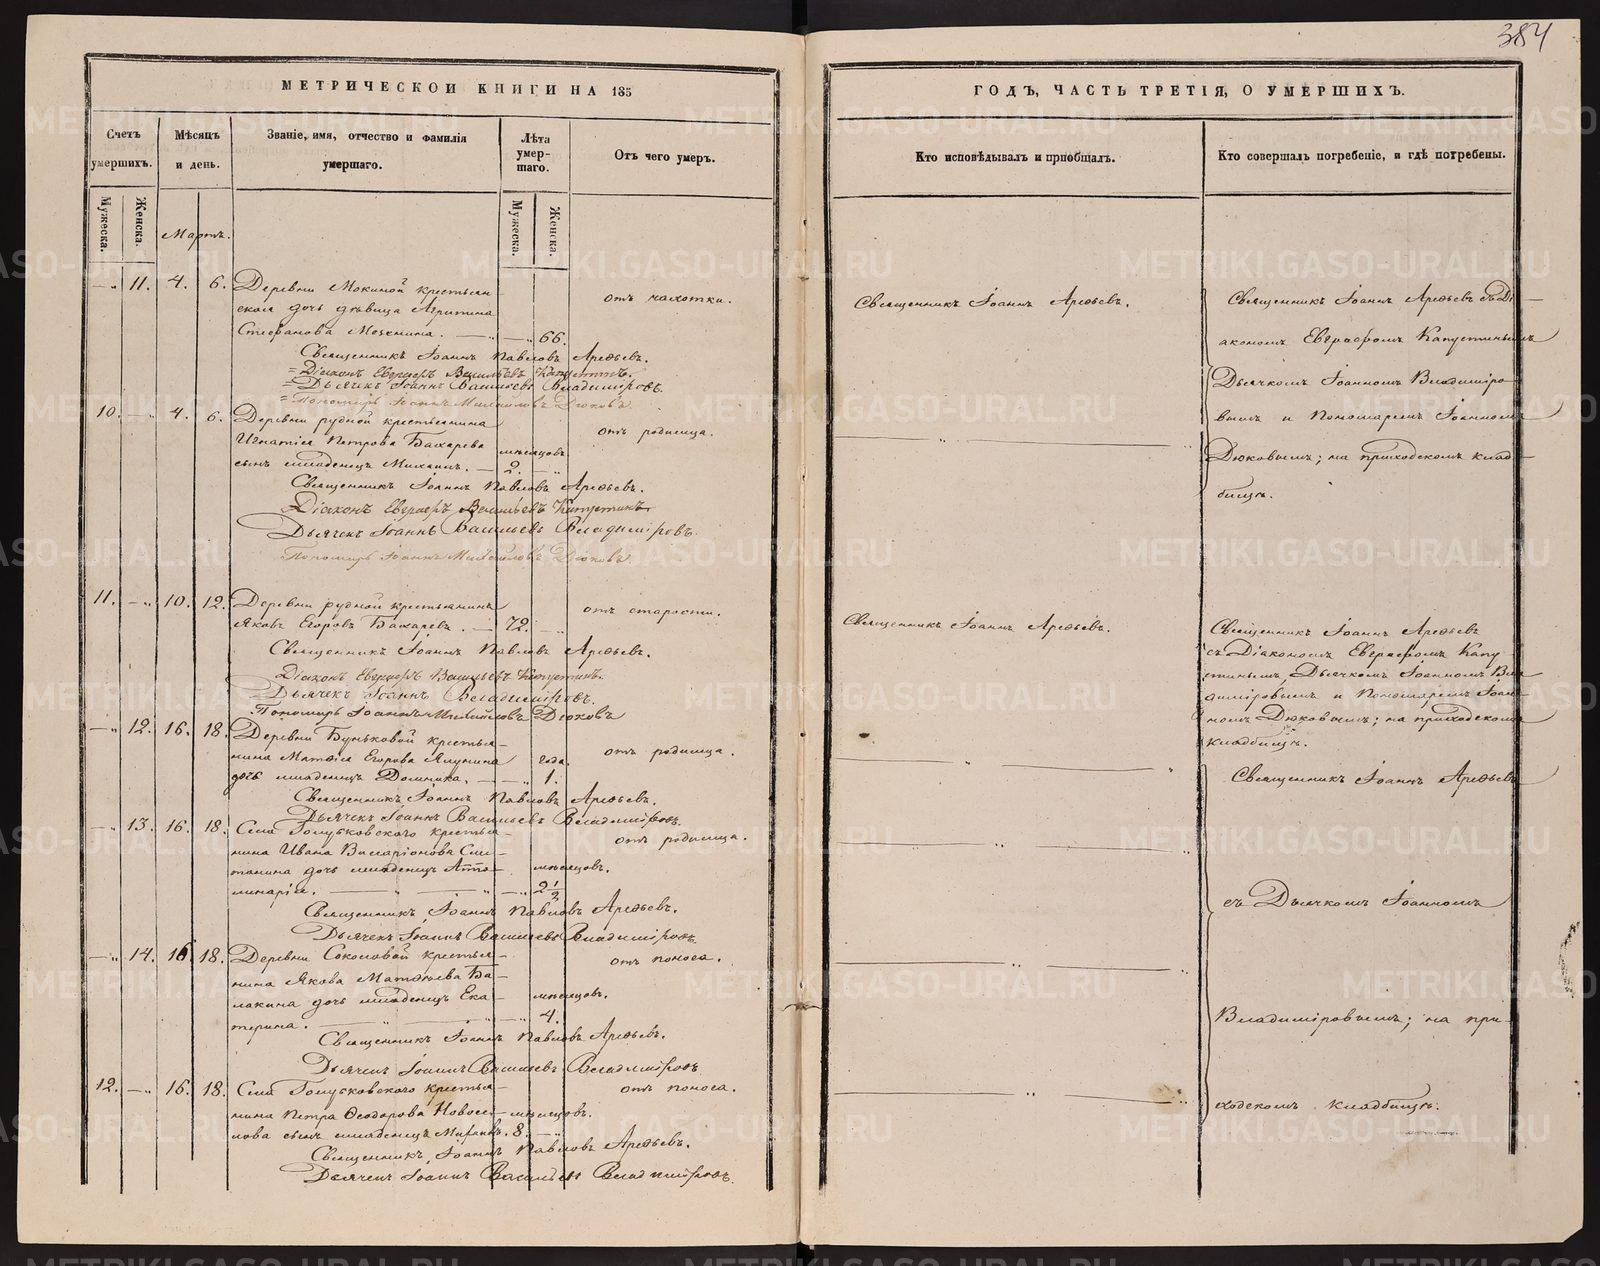 384
МЕТРИЧЕСКОЙ КНИГИ НА 185
Счетъ умершихъ.
Мѣсяцъ и день.
Званіе, имя, отчество и фамилія умершаго.
Лѣта умершаго.
Отъ чего умеръ.
Мужеска.
Женска.
Мужеска.
Женска.
Мартъ.
— „ 11. 4. 6. Деревни Мокиной крестьян- отъ чахотки.
ская дочь дѣвица Агрипина
Стефанова Мокѣина. — „ — „ 66.
Священникъ Іоаннъ Павловъ Арефьевъ.
= Діаконъ Евграфъ Васильевъ Капустинъ.
= Дьячекъ Іоаннъ Васильевъ Владиміровъ.
= Пономарь Іоаннъ Михайловъ Дюковъ.
10. — „ 4. 6. Деревни рудной крестьянина отъ родимца.
Игнатія Петрова Бахарева мѣсяцовъ
сынъ младенецъ Михаилъ. — 2. — „
Священникъ Іоаннъ Павловъ Арефьевъ.
Діаконъ Евграфъ Васильевъ Капустинъ
Дьячекъ Іоаннъ Васильевъ Владиміровъ.
Пономарь Іоаннъ Михайловъ Дюковъ.
11. — „ 10. 12. Деревни рудной крестьянинъ отъ старости.
Яковъ Егоровъ Бахаревъ. — 72. — „
Священникъ Іоаннъ Павловъ Арефьевъ.
Діаконъ Евграфъ Васильевъ Капустинъ.
Дьячекъ Іоаннъ Владиміровъ.
Пономарь Іоаннъ Михайловъ Дюковъ
— „ 12. 16. 18. Деревни Буньковой крестья- отъ родимца.
нина Матѳія Егорова Ялунина года.
дочь младенецъ Домника. — „ 1.
Священникъ Іоаннъ Павловъ Арефьевъ.
Дьячекъ Іоаннъ Васильевъ Владиміровъ.
— „ 13. 16. 18. Села Голубковского крестья- отъ родимца.
нина Ивана Иларіонова Сми-
танина дочь младенецъ Апол- мѣсяцовъ.
линарія. — „ — „ — „ 2 1/2
Священникъ Іоаннъ Павловъ Арефьевъ.
Дьячекъ Іоаннъ Васильевъ Владиміровъ.
— „ 14. 16. 18. Деревни Соколовой крестья- отъ поноса.
нина Якова Матѳѣева Ба-
лакина дочь младенецъ Ека- мѣсяцовъ.
терина. — „ — „ — „ 4.
Священникъ Іоаннъ Павловъ Арефьевъ.
Дьячекъ Іоаннъ Васильевъ Владиміровъ
12. — „ 16. 18. Села Голубковского крестья- отъ поноса.
нина Петра Ѳеодорова Новосе- мѣсяцовъ.
лова сынъ младенецъ 8. — „
Священникъ Іоаннъ Павловъ Арефьевъ.
Дьячекъ Іоаннъ Васильевъ Владиміровъ.
ГОДЪ, ЧАСТЬ ТРЕТІЯ, О УМЕРШИХЪ.
Кто исповѣдывалъ и пріобщалъ.
Кто совершалъ погребеніе, и гдѣ погребены.
Священникъ Іоаннъ Арефьевъ.
Священникъ Іоаннъ Арефьевъ съ Ді-
акономъ Евграфомъ Капустинымъ
Дьячкомъ Іоанномъ Владиміро-
вымъ и Пономаремъ Іоанномъ
Дюковымъ; на приходскомъ клад-
бищѣ.
Священникъ Іоаннъ Арефьевъ.
Священникъ Іоаннъ Арефьевъ
съ Діакономъ Евграфомъ Капу-
стинымъ, Дьячкомъ Іоанномъ Вла-
диміровымъ и Пономаремъ Іоан-
номъ Дюковымъ; на приходскомъ
кладбищѣ.
Священникъ Іоаннъ Арефьевъ
съ Дьячкомъ Іоанномъ
Владиміровымъ; на при-
ходскомъ кладбищѣ.
METRIKI.GASO-URAL.RU